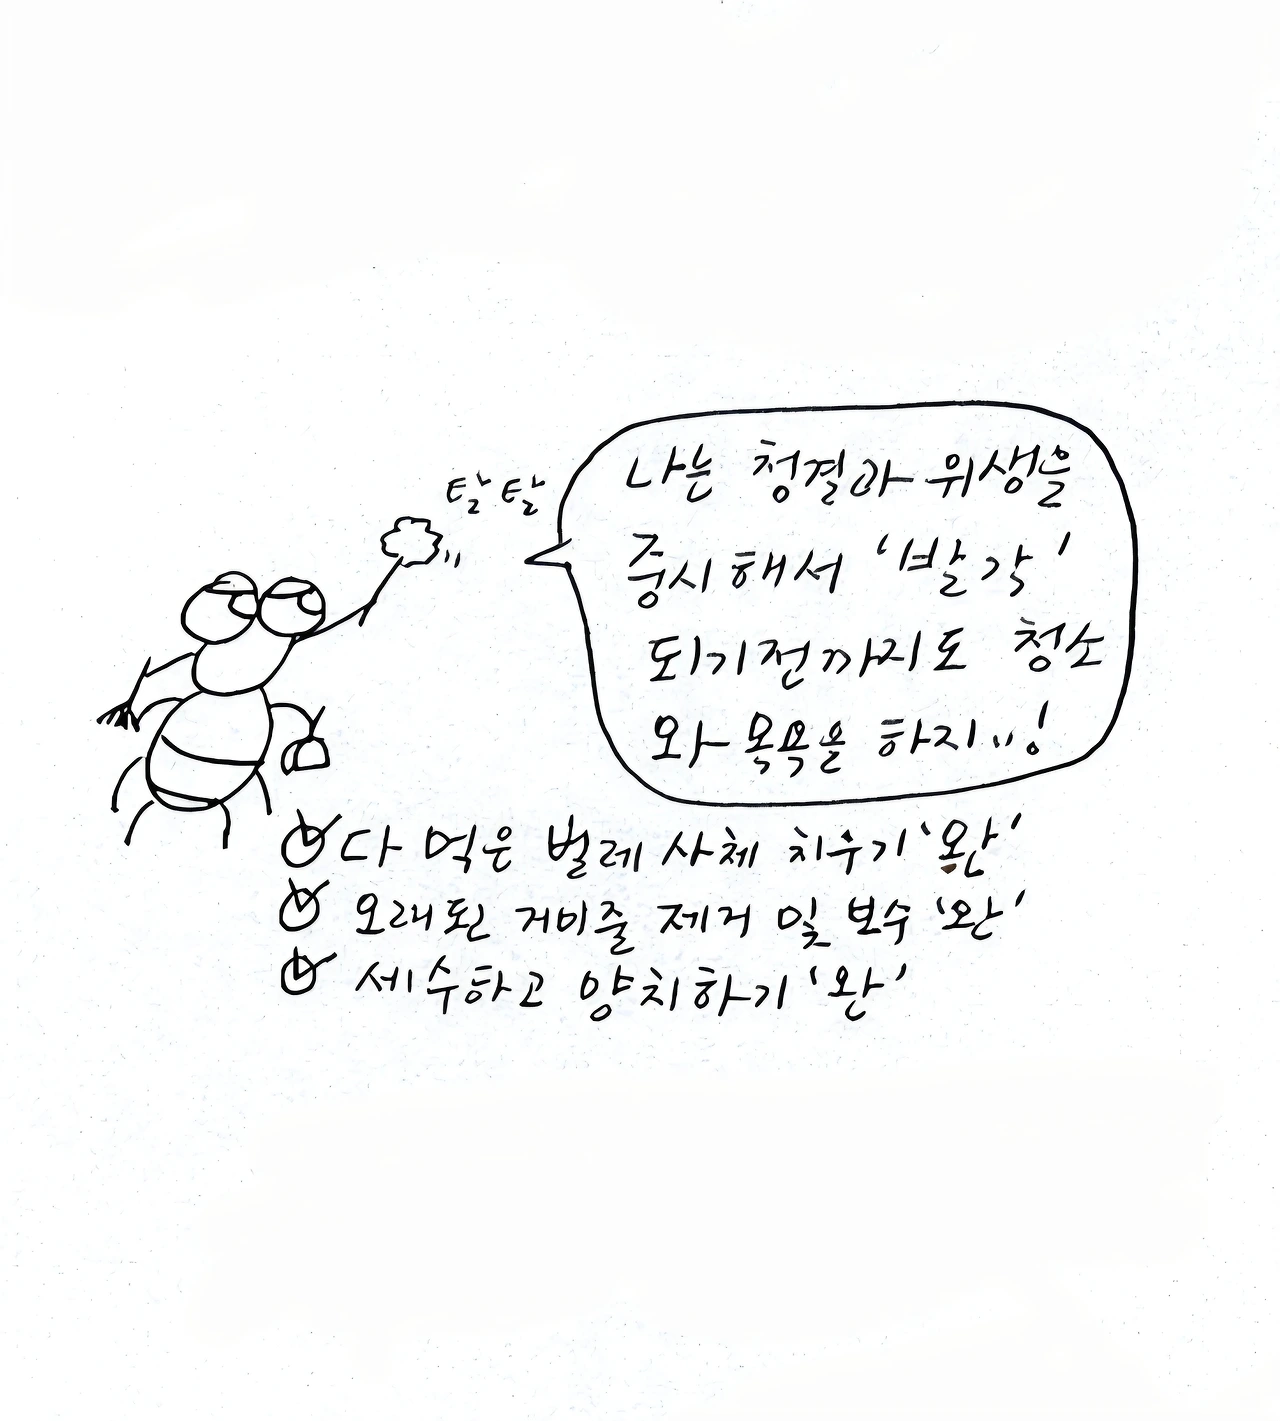 탈탈
나는 청결과 위생을
중시해서 '발각'
되기전까지도 청소
와 목욕을 하지〃!
다 먹은 벌레 사체 치우기 '완'
오래된 거미줄 제거 및 보수 '완'
세수하고 양치하기 '완'